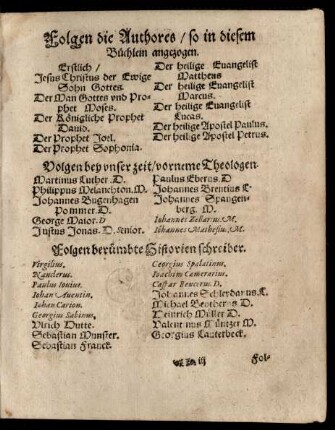 Folgen die Authores / so in diesem
Büchlein angezogen.
Erstlich /
Jesus Christus der Ewige
Sohn Gottes.
Der Man Gottes vnd Pro-
phet Moses.
Der Königliche Prophet
Dauid.
Der Prophet Joel.
Der Prophet Sophonia.
Der heilige Euangelist
Mattheus
Der heilige Euangelist
Marcus.
Der heilige Euangelist
Lucas.
Der heilige Apostel Paulus.
Der heilige Apostel Petrus.
Volgen bey vnser zeit / vorneme Theologen.
Martinus Luther. D.
Philippus Melanchton. M.
Johannes Bugenhagen
Pommer. D.
George Maior. D
Justus Jonas. D. Senior.
Paulus Eberus. D
Johannes Brentius
Johannes Spangen-
berg. M.
Iohannes M.
Iohannes Mathesius. M.
Folgen berümbte Historien schreiber.
Virgilius,
Nauclerus.
Paulus Iouius.
Iohan Auentin.
Iohan Carion.
Georgius Sabinus.
Vlrich Hutte.
Sebastian Munster.
Sebastian Franck.
Georgius Spalatinus.
Ioachim Camerarius.
Caspar Beucerus. D.
Johannes Schleydanus.
Michael Beutherus D.
Heinrich Müller D.
Valentinus Müntzer M.
Georgius Lauterbeck.
Fol-